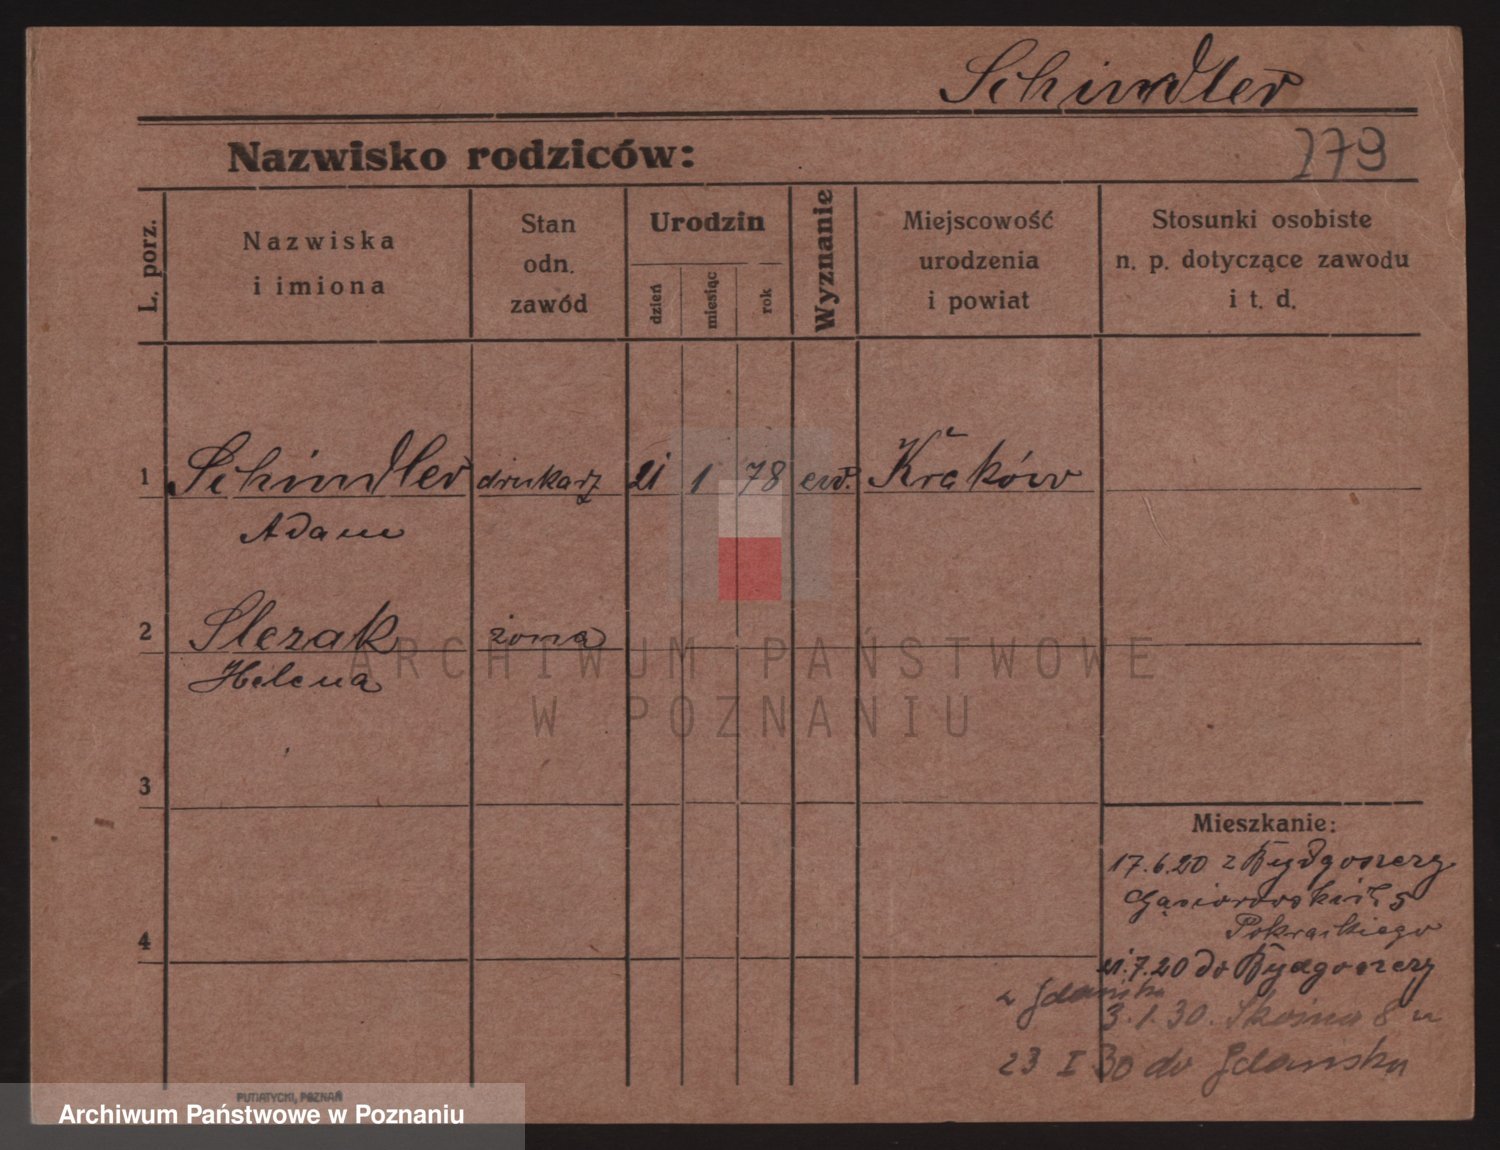 Schindler
Nazwisko rodziców:
279
L. porz.
Nazwiska
i imiona
Stan
odn.
zawód
Urodzin
dzień
miesiąc
rok
Wyznanie
Miejscowość
urodzenia
i powiat
Stosunki osobiste
n. p. dotyczące zawodu
i t. d.
1 Schindler drukarz 21 1 78 ew. Kraków
Adam
2 Slezak żona
Helena
ARCHIWUM PAŃSTWOWE
W POZNANIU
3
Mieszkanie:
17.6.20 z Bydgoszczy
5
4
21.7.20 do Bydgoszczy
z Gdańska
3.1.30. 8
23 I 30 do Gdańska
PUTIATYCKI, POZNAŃ
Archiwum Państwowe w Poznaniu